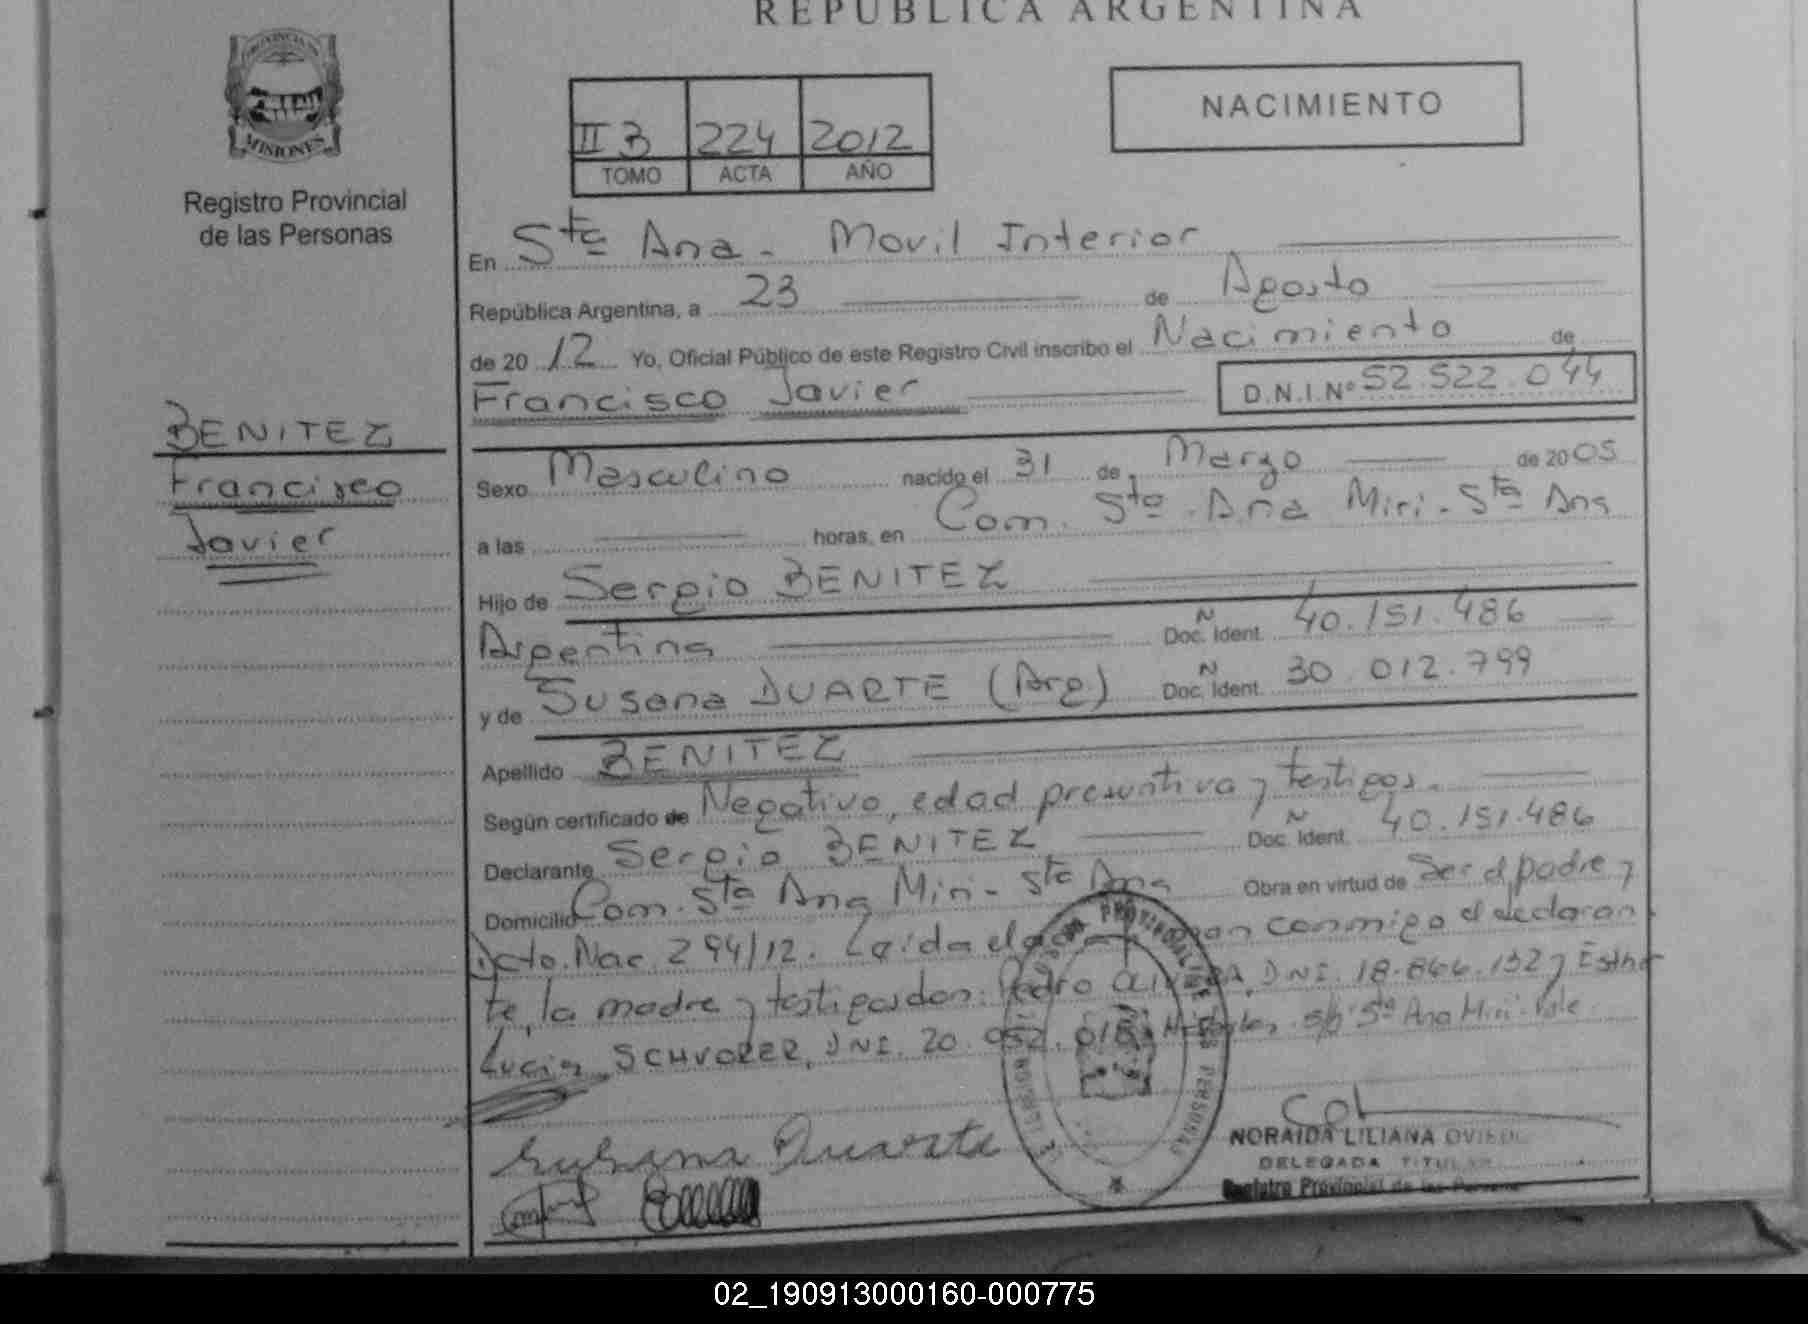 REPUBLICA ARGENTINA
PROVINCIA DE
MISIONES
Registro Provincial
de las Personas
II B 224 2012
TOMO ACTA AÑO
NACIMIENTO
En Sta Ana - Movil Interior
República Argentina, a 23 de Agosto
de 20 12 Yo, Oficial Público de este Registro Civil inscribo el Nacimiento de
Francisco Javier D.N.I.Nº 52.522.044
BENITEZ
Francisco
Javier
Sexo Masculino nacido el 31 de Marzo de 2005
a las horas, en Com. Sta. Ana Miri - Sta Ana
Hijo de Sergio BENITEZ
Argentina N Doc. Ident. 40.151.486
y de Susana DUARTE (Arg) N Doc. Ident. 30.012.799
Apellido BENITEZ
Según certificado de Negativo, edad presuntiva y testigos.
Declarante Sergio BENITEZ N Doc. Ident. 40.151.486
Domicilio Com. Sta Ana Miri - Sta Ana Obra en virtud de Ser el padre y
Dcto. Nac. 294/12. Leida el conmigo el declaran
te, la madre y testigos don: Pedro DNI. 18.866.132 y Esther
Lucia SCHVORER, DNI. 20.952.018 Sta Ana Miri. Vale
Susana Duarte
NORAIDA LILIANA OVIEDO
DELEGADA TITULAR
Registro Provincial de las Personas
02_190913000160-000775